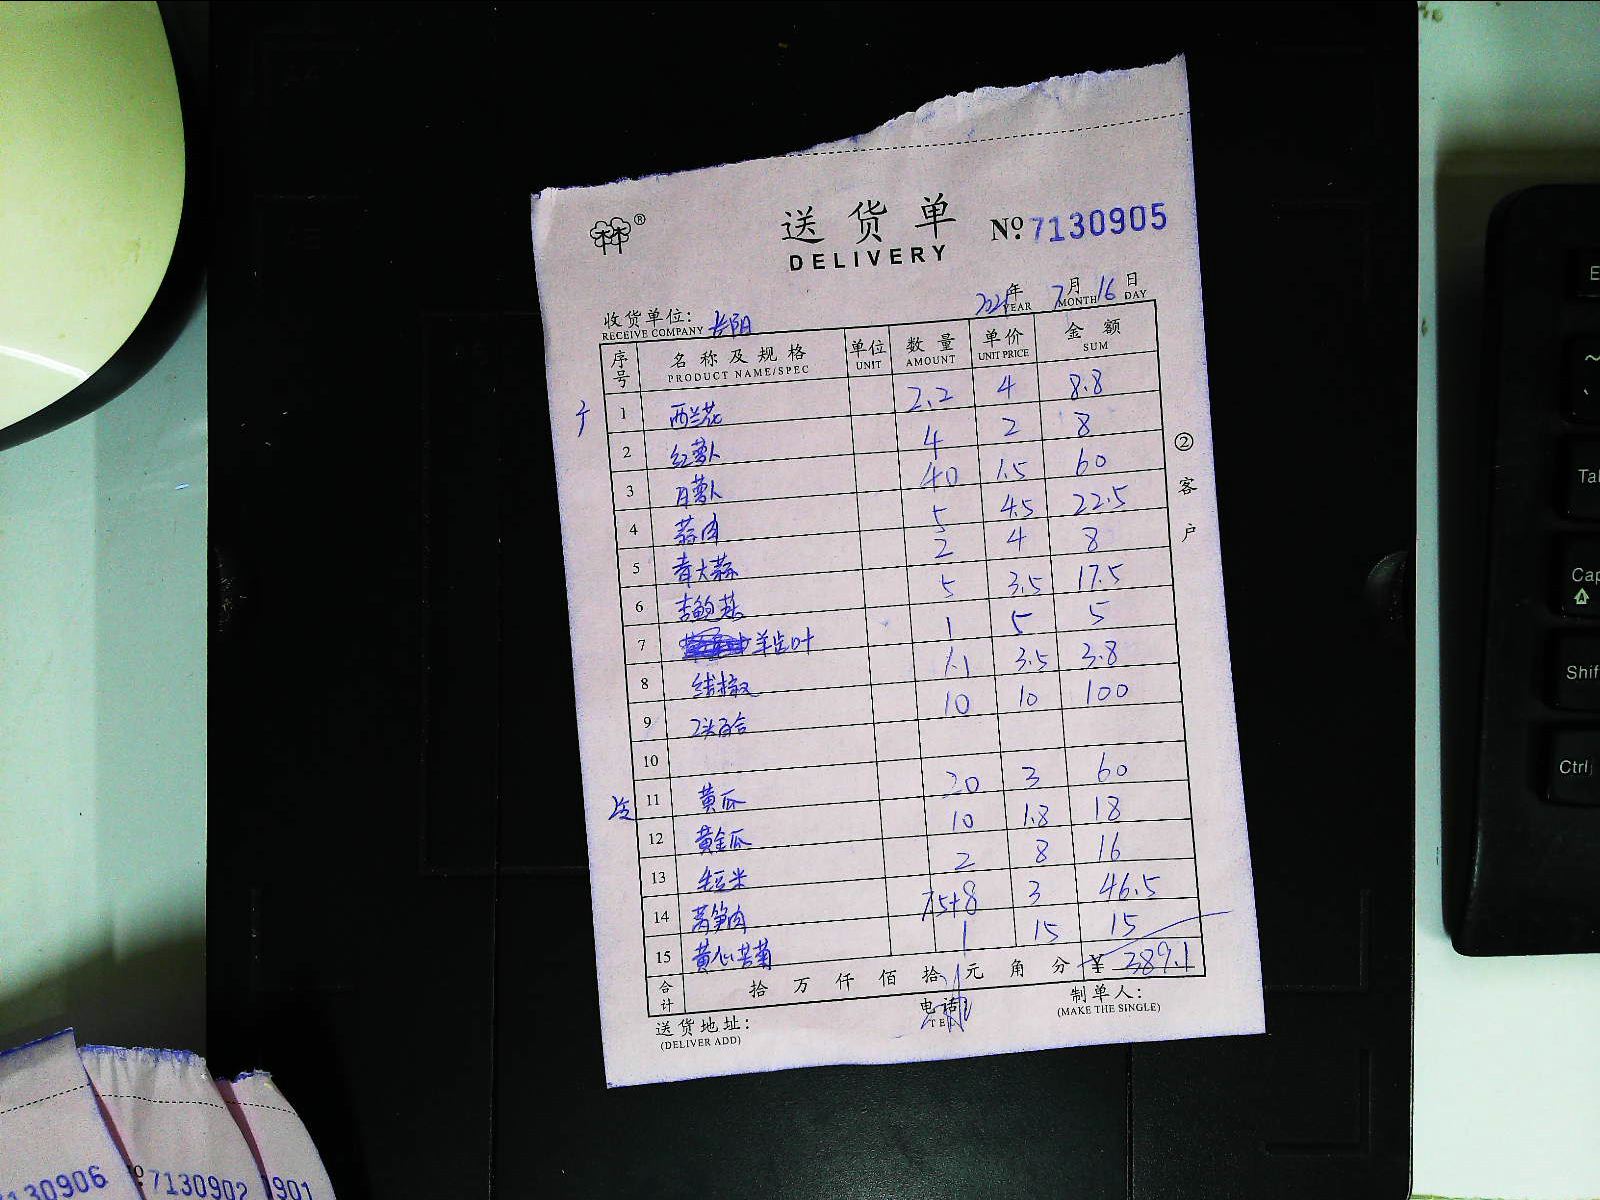 ®
送 货 单 Nº 7130905
DELIVERY
2021年 7月 16日
YEAR MONTH DAY
收货单位：
RECEIVE COMPANY
序号 名称及规格 单位 数量 单价 金额
PRODUCT NAME/SPEC UNIT AMOUNT UNIT PRICE SUM
1 西兰花 2.2 4 8.8
2 红萝卜 4 2 8
3 白萝卜 40 1.5 60
4 蒜肉 5 4.5 22.5
5 青大蒜 2 4 8
6 杏鲍菇 5 3.5 17.5
7 羊齿叶 1 5 5
8 线椒 1.1 3.5 3.8
9 百合 10 10 100
10
11 黄瓜 20 3 60
12 黄金瓜 10 1.8 18
13 米 2 8 16
14 莴笋肉 7.5+8 3 46.5
15 黄心苦菊 1 15 15
合计 拾 万 仟 佰 拾 元 角 分 ¥ 389.1
送货地址： 电话： 制单人：
(DELIVER ADD) TEL (MAKE THE SINGLE)
②客户
7130906
7130902
901
E
~
Tab
Cap
Shif
Ctrl